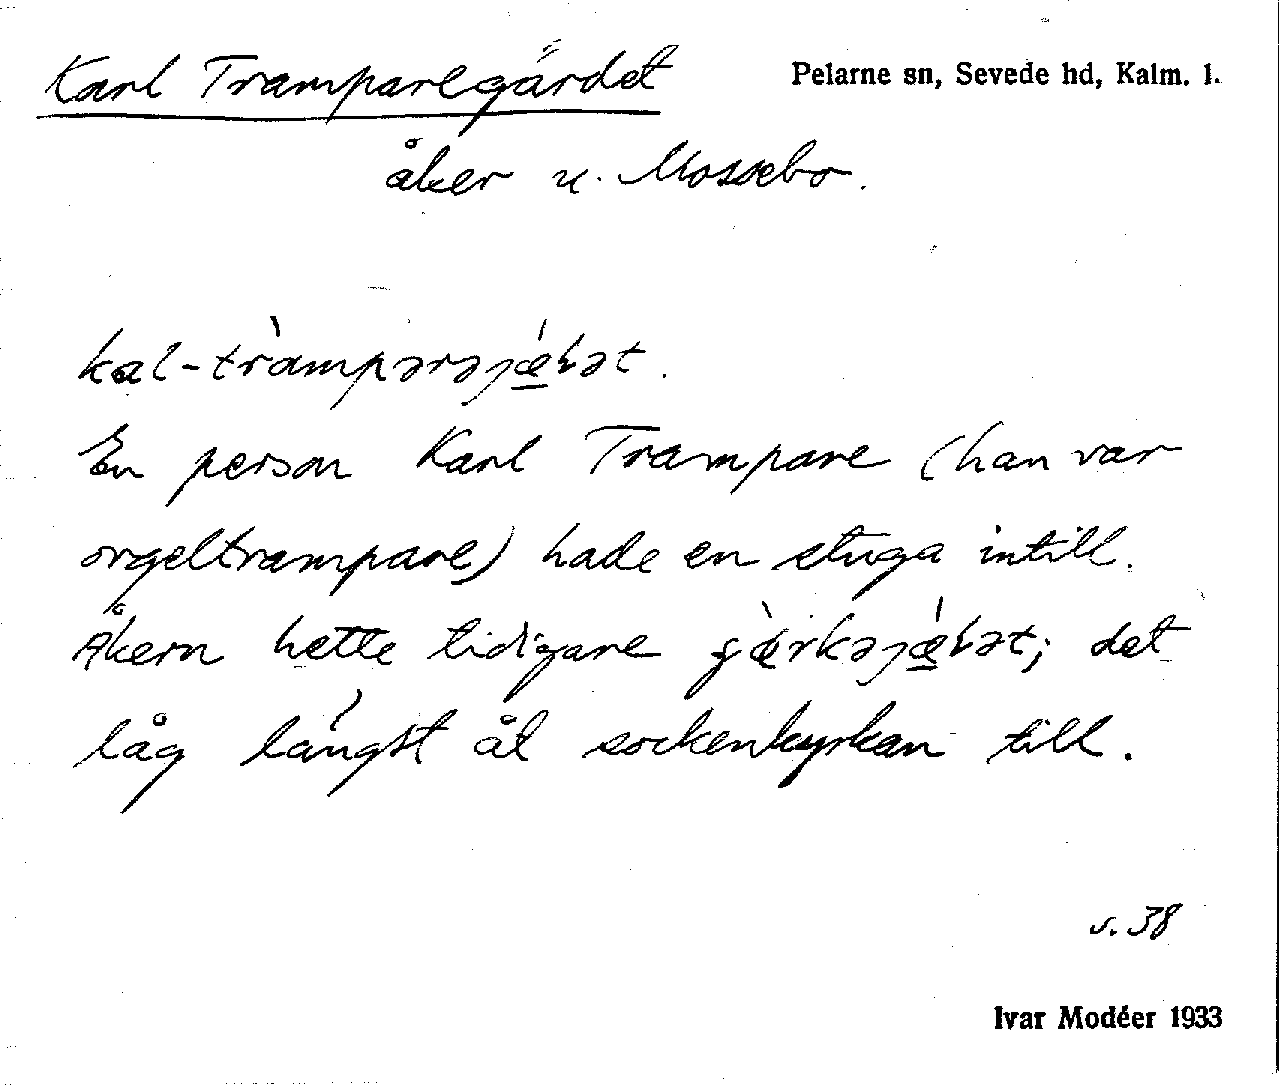 Karl Tramparegärdet
Pelarne sn, Sevede hd, Kalm. l.
åker u. Mossebo.
kal-tràmpərəjǽ̱ɽət.
En person Karl Trampare (han var
orgeltrampare) hade en stuga intill.
Åkern hette tidigare ; det
låg längst åt sockenkyrkan till.
s. 38
Ivar Modéer 1933